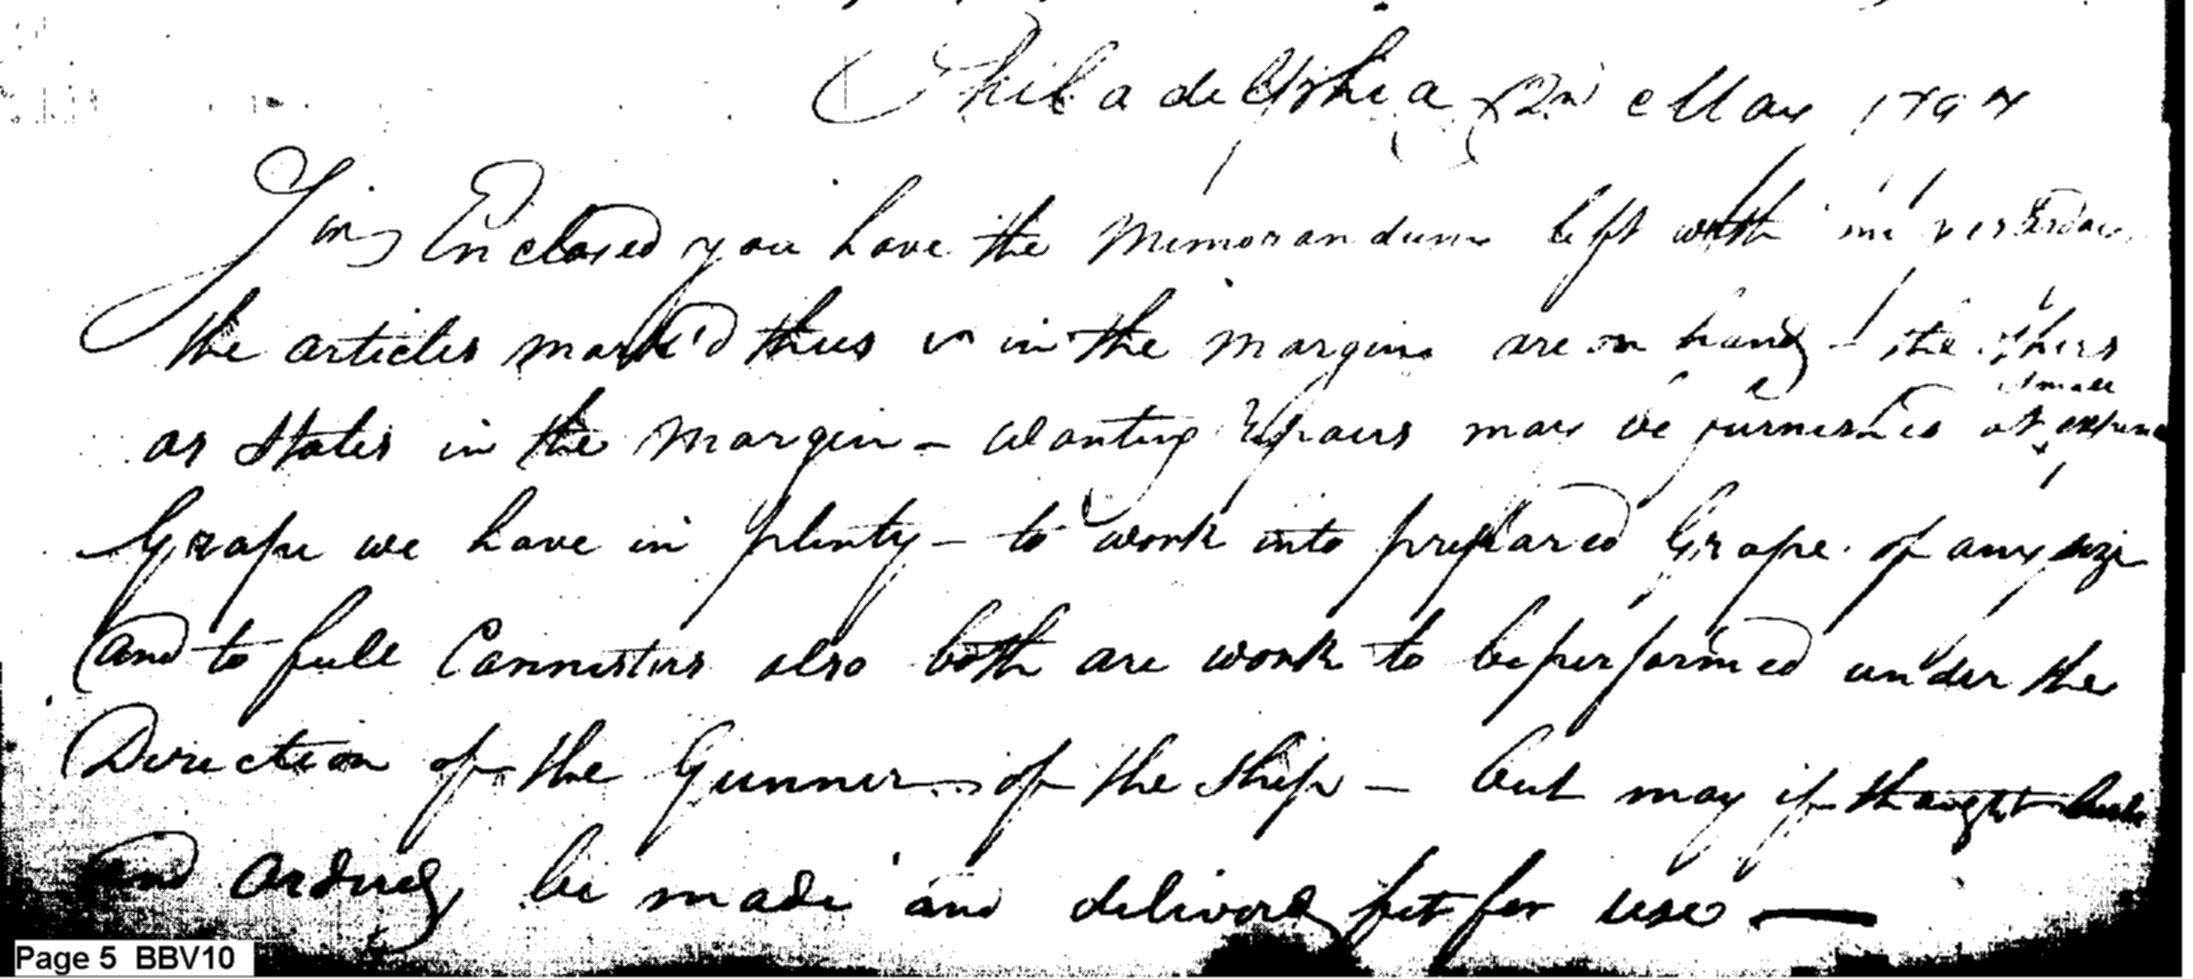 Philadelphia 2nd May 1794
Sir Enclosed you have the Memorandum left with me yesterday
the articles mark'd thus v in the margin are on hand - the others
small
as states in the margin - wanting repairs may be furnished at expence
Grape we have in plenty - to work into prepared Grape of any size
and to fill Cannisters also both are work to be performed under the
Direction of the Gunner of the Ship - but may if thought
and ordered, be made and delivered fit for use -
Page 5 BBV10